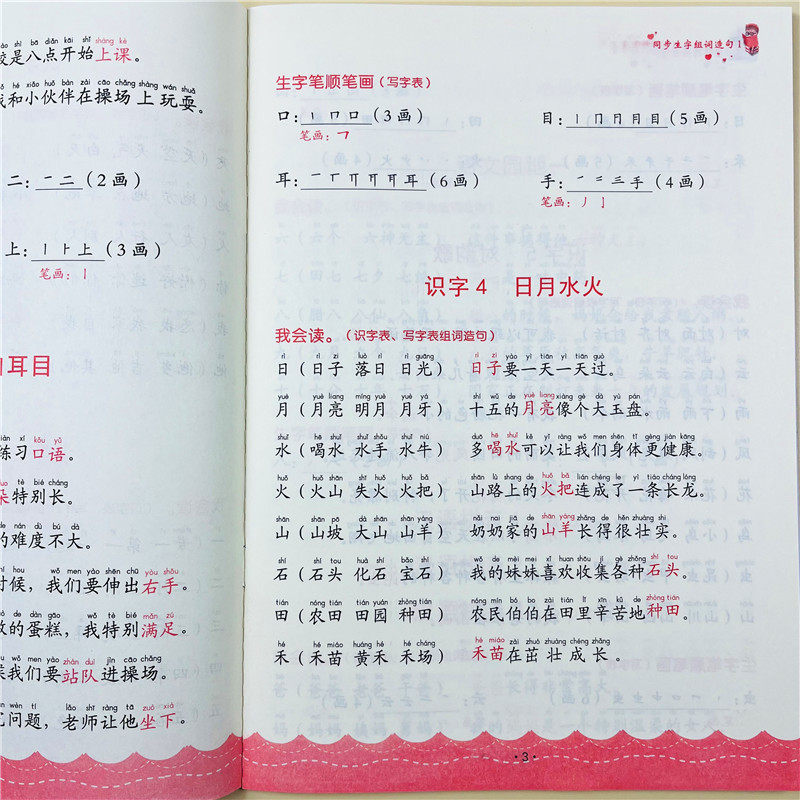 校是八点开始上课。
我和小伙伴在操场上玩耍。
二：一 二（2画）
上：丨 卜 上（3画）
笔画：丨
耳目
练习口语。
朵特别长。
的难度不大。
时候，我们要伸出右手。
做的蛋糕，我特别满足。
候我们要站队进操场。
问题，老师让他坐下。
同步生字组词造句1
生字笔顺笔画（写字表）
口：丨 冂 口（3画）
笔画：㇕
目：丨 冂 月 月 目（5画）
耳：一 丅 丌 耳（6画）
手：一 二 三 手（4画）
笔画：丿 亅
识字4 日月水火
我会读。（识字表、写字表组词造句）
rì rì zi luò rì rì guāng rì zi yào yì tiān yì tiān guò
日（日子 落日 日光） 日子要一天一天过。
yuè yuè liang míng yuè yuè yá shí wǔ de yuè liang xiàng gè dà yù pán
月（月亮 明月 月牙） 十五的月亮像个大玉盘。
shuǐ hē shuǐ shuǐ shǒu shuǐ niú duō hē shuǐ kě yǐ ràng wǒ men shēn tǐ gèng jiàn kāng
水（喝水 水手 水牛） 多喝水可以让我们身体更健康。
huǒ huǒ shān shī huǒ huǒ bǎ shān lù shang de huǒ bǎ lián chéng le yì tiáo cháng lóng
火（火山 失火 火把） 山路上的火把连成了一条长龙。
shān shān pō dà shān shān yáng nǎi nai jiā de shān yáng zhǎng de hěn zhuàng shi
山（山坡 大山 山羊） 奶奶家的山羊长得很壮实。
shí shí tou huà shí bǎo shí wǒ de mèi mei xǐ huan shōu jí gè zhǒng shí tou
石（石头 化石 宝石） 我的妹妹喜欢收集各种石头。
tián nóng tián tián yuán zhòng tián nóng mín bó bo zài tián lǐ xīn kǔ de zhòng tián
田（农田 田园 种田） 农民伯伯在田里辛苦地种田。
hé hé miáo huáng hé hé cháng hé miáo zài zhuó zhuàng chéng zhǎng
禾（禾苗 黄禾 禾场） 禾苗在茁壮成长
·3·